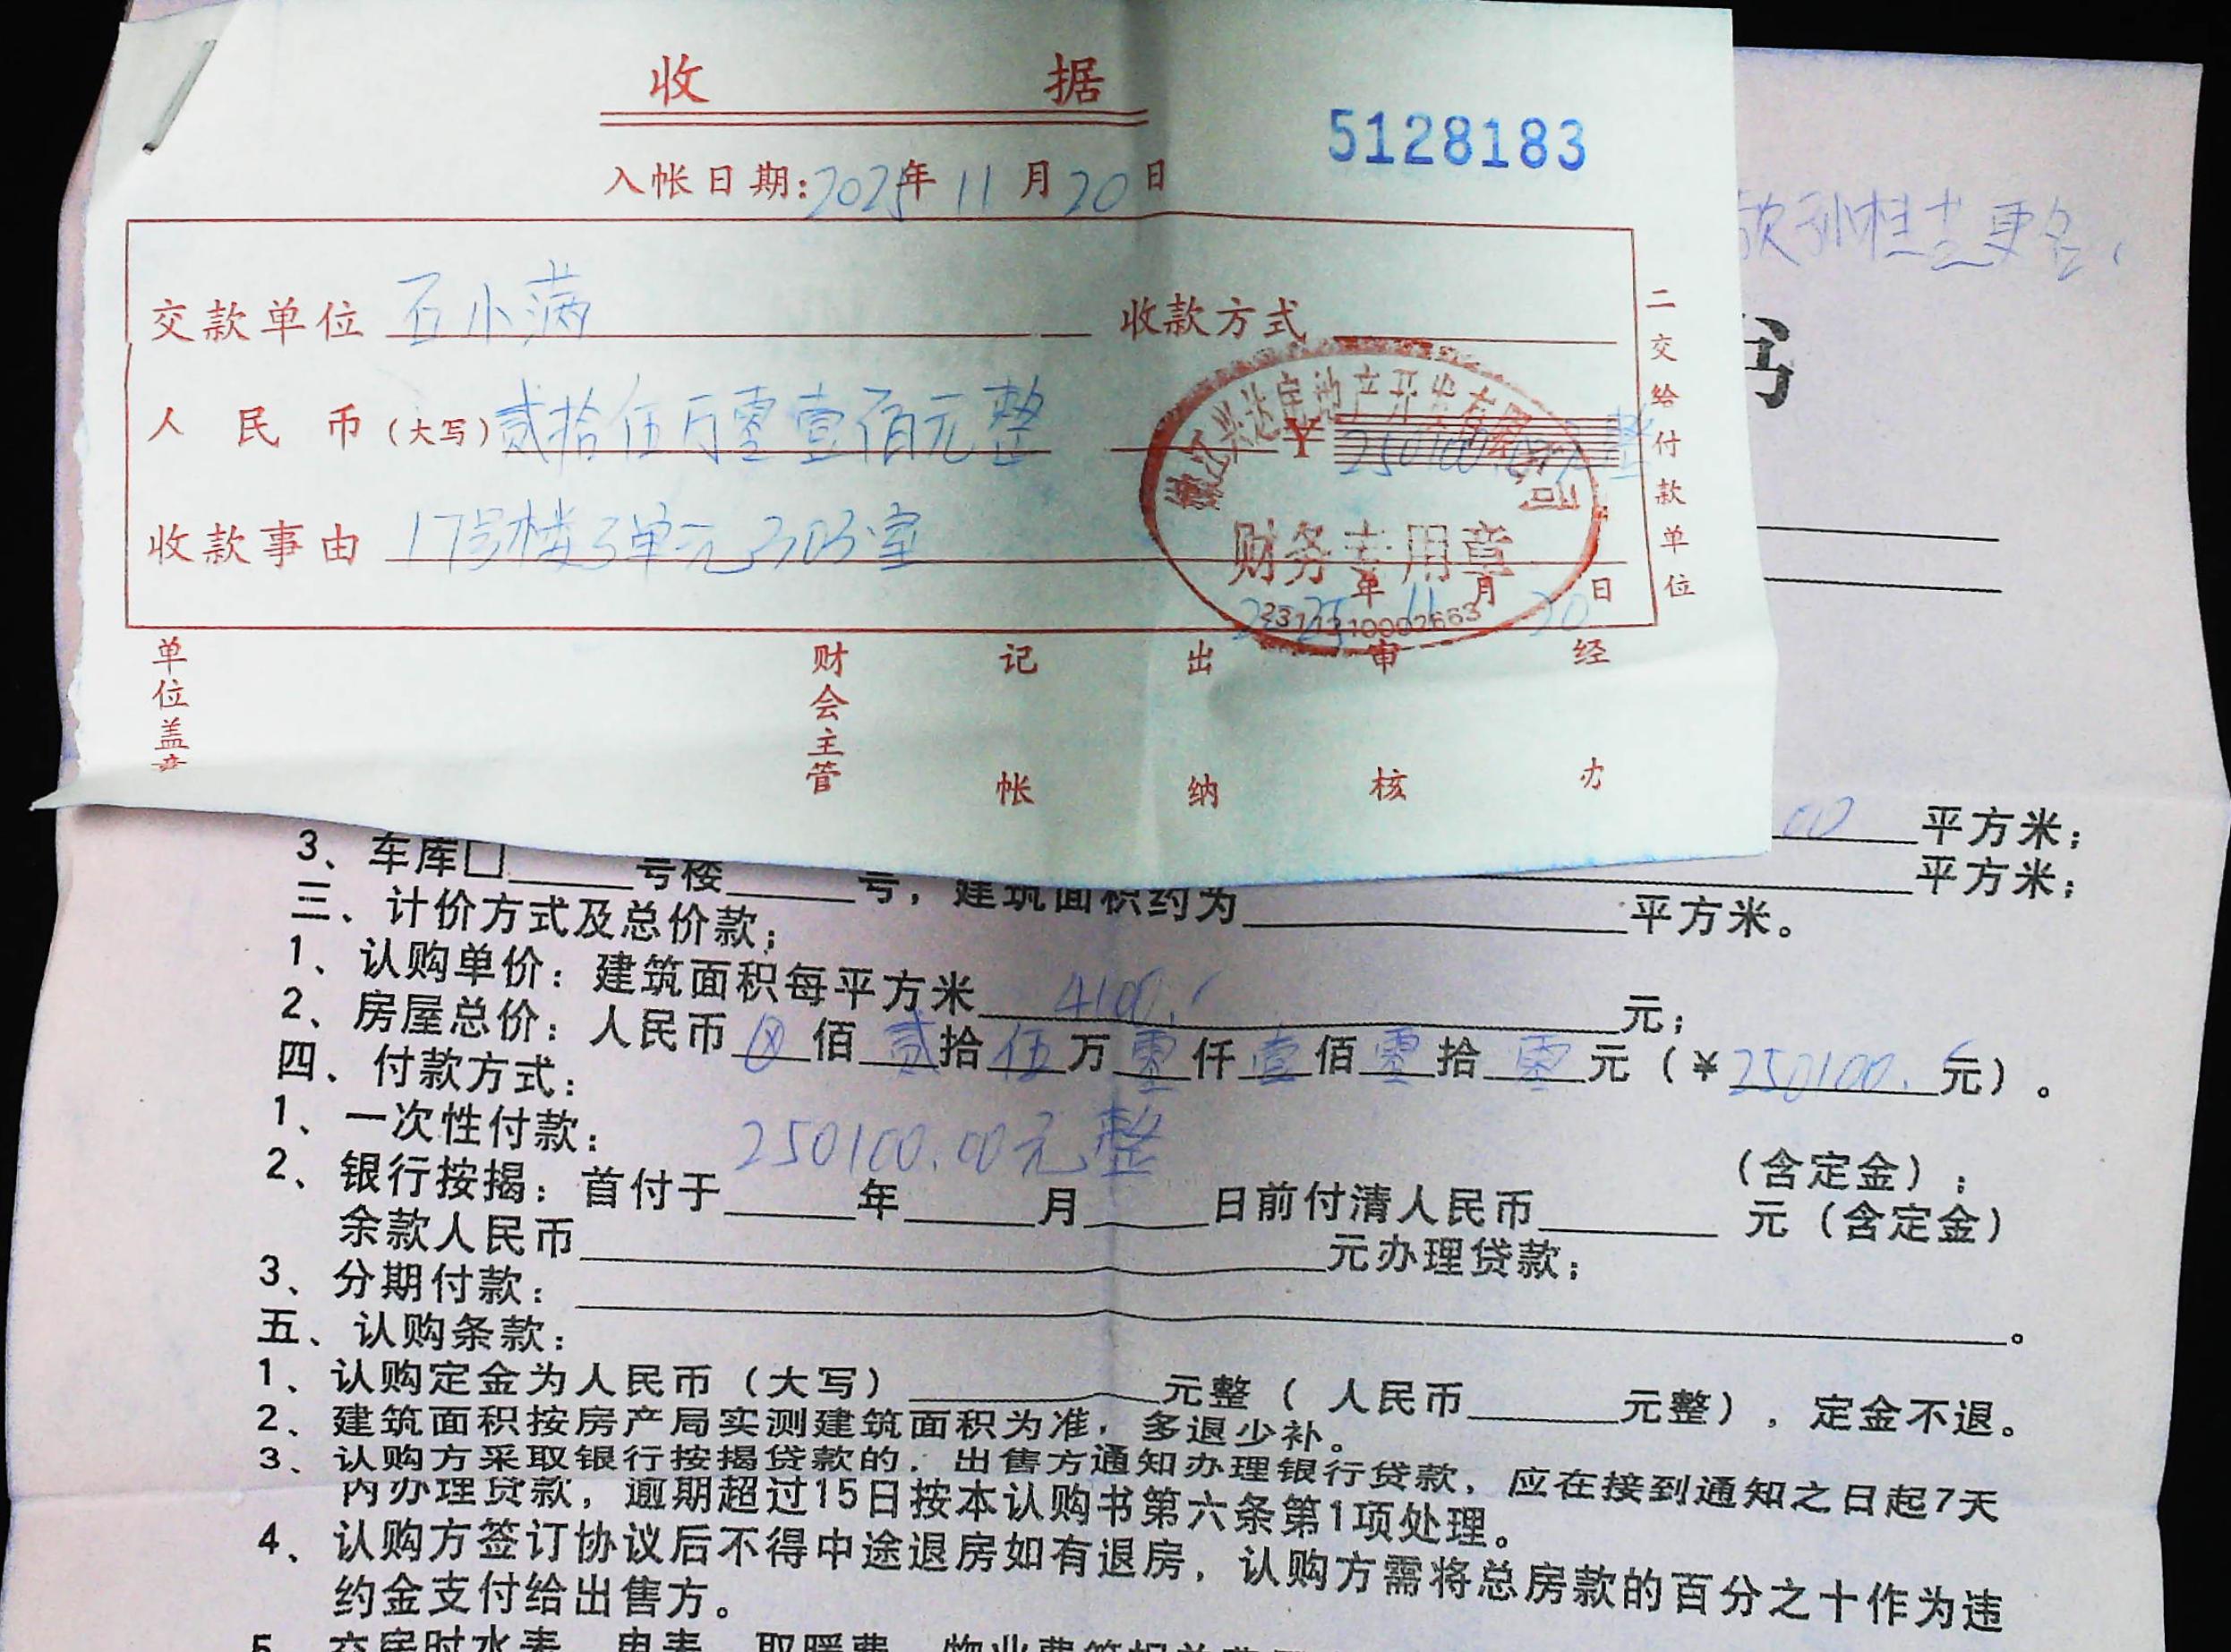 收 据
5128183
入帐日期:2025年 11 月 20 日
交款单位 石小满 收款方式
人 民 币(大写)贰拾伍万零壹佰元整 ¥250100.00元整
收款事由 17号楼3单元303室
兴达房地产开发有限公司
财务专用章
2025年 11 月 20 日
二交给付款单位
单位盖章 财会主管 记帐 出纳 审核 经办
更名
书
00 平方米;
平方米;
3、车库□ 号楼 号,建筑面积约为 平方米。
三、计价方式及总价款;
1、认购单价:建筑面积每平方米 4100. 元;
2、房屋总价:人民币 佰 贰 拾 伍 万 零 仟 壹 佰 零 拾 零 元(¥250100. 元)。
四、付款方式:
1、一次性付款: 250100.00元整 (含定金);
2、银行按揭:首付于 年 月 日前付清人民币 元(含定金)
余款人民币 元办理贷款;
3、分期付款: 。
五、认购条款:
1、认购定金为人民币(大写) 元整( 人民币 元整),定金不退。
2、建筑面积按房产局实测建筑面积为准,多退少补。
3、认购方采取银行按揭贷款的,出售方通知办理银行贷款,应在接到通知之日起7天
内办理贷款,逾期超过15日按本认购书第六条第1项处理。
4、认购方签订协议后不得中途退房如有退房,认购方需将总房款的百分之十作为违
约金支付给出售方。
5、交房时水表、电表、取暖费、物业费等相关费